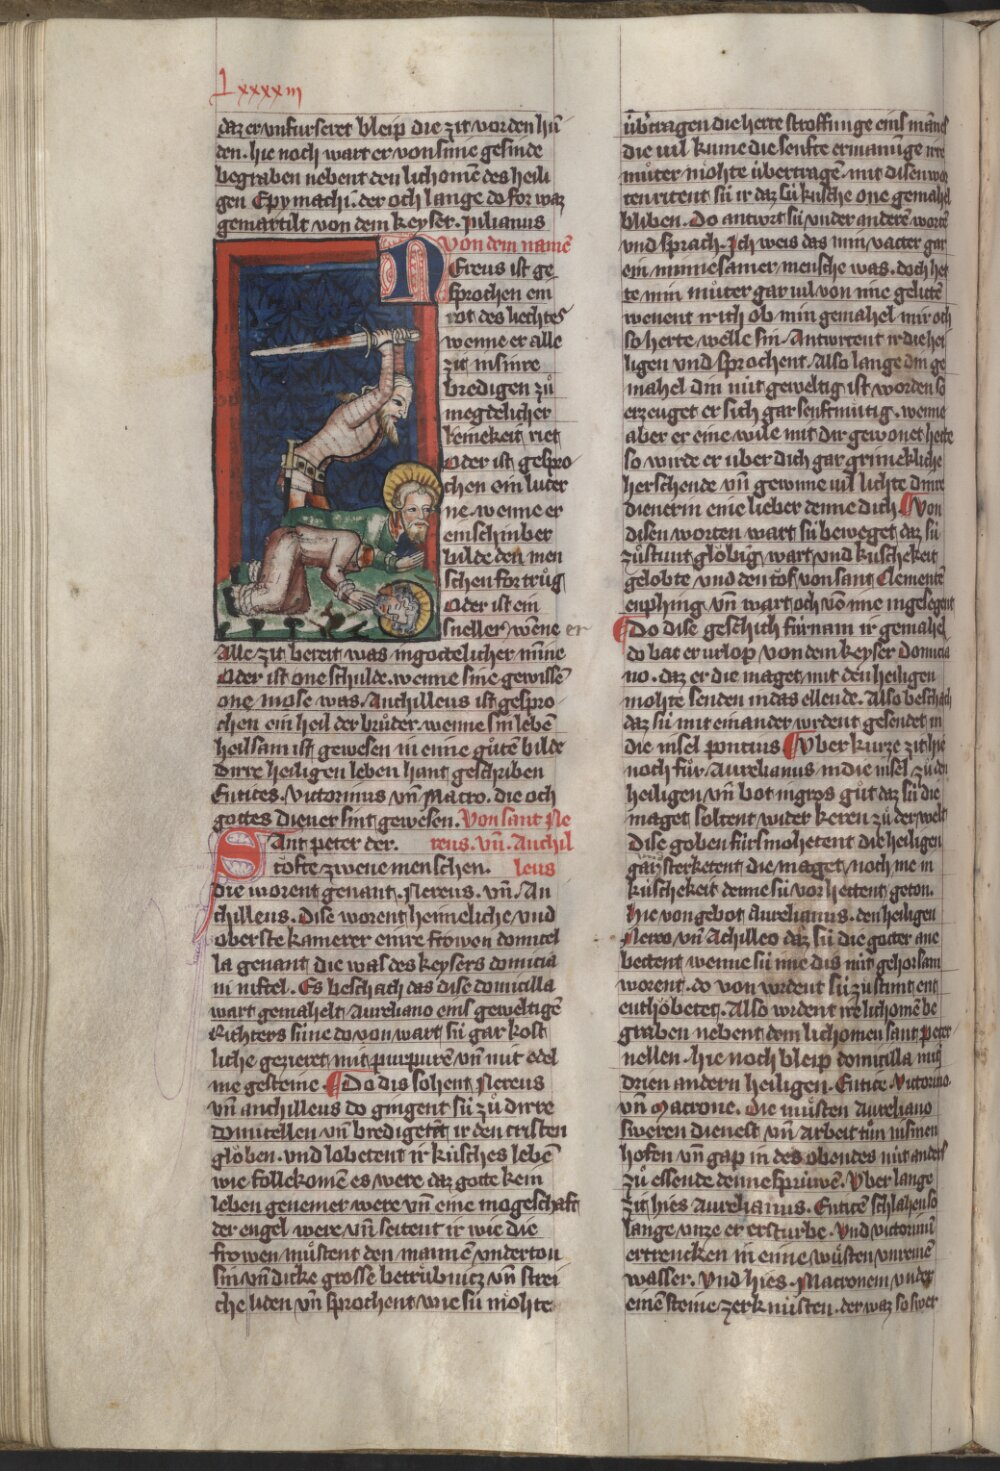 Lxxxxiii
daz er unfurseret bleip die zit vor den hū
den. hie noch wart er von sime gesinde
begraben nebent den lichomē des heili
gen Epymachi. der och lange do for waz
gemartilt von dem keyser. Julianus
von dem namē
Nereus ist ge
sprochen ein
rot des liechtes
wenne er alle
zit in sinre
bredigen zů
megdelicher
keinekeit riet
Oder ist gespro
chen ein lucer
ne. wenne er
ein schinber
bilde den men
schen for trůg
Oder ist ein
sneller wēne er
Alle zit bereit was in gottelicher mīne
Oder ist one schulde. wenne sine gewissē
one mose was. Anchilleus ist gespro
chen ein heil der brůder. wenne sin lebē
heilsam ist gewesen in eime gůtē bilde
Dirre heiligen leben hant geschriben
Eutices. Victorinus vn̄ Macro. die och
gottes diener sint gewesen. Von sant Ne
Sant peter der. reus. vn̄. Anchil
tofte zwene menschen. leus
die worent genant. Nereus. vn̄. An
chilleus. Dise worent heimeliche und
oberste kamerer einre frowen domicel
la genant die was des keysers domicia
ni niftel. Es beschach das dise domicilla
wart gemahelt Aureliano eins geweltigē
Richters sůne do von wart sů gar kost
liche gezieret mit purpurē vn̄ mit edel
me gesteine. Do dis sohent Nereus
vn̄ anchilleus do gingent sů zů dirre
domicellen vn̄ bredigetēt ir den cristen
globen. und lobetent ir kůsches lebē
wie follekomē es were daz gotte kein
leben genemer were vn̄ eine mogeschaft
der engel were vn̄ seitent ir wie die
frowen můstent den mannē underton
sin vn̄ dicke grosse betrůbnicz vn̄ strei
che liden vn̄ sprochent wie sů mohte
übertragen die herte stroffunge eins mānes
die vil kume die senfte ermanūge irre
můter mohte übertragē. mit disen wor
ten rietent sů ir daz sů kusche one gemahel
bliben. Do antwrt sů under anderē wortē
und sprach. Ich weis das min vatter gar
ein minnesamer mensche was. doch het
te min můter gar vil von ime gelittē
wenent ir ich ob min gemahel mir och
so herte welle sin. Antwrtent ir die hei
ligen und sprochent. Also lange din ge
mahel din nůt geweltig ist worden so
erzeuget er sich gar senftmůtig. wenne
aber er eine wile mit dir gewonet hette
so wirde er über dich gar grimekliche
herschende vn̄ gewinne vil lichte dinre
dienerin eine lieber denne dich. Von
disen worten wart sů beweget daz sů
zůstunt globig wart und kuschekeit
gelobte und den tof von sant Clementē
enphing vn̄ wart och vō ime ingesegent
Do dise geschicht fůrnam ir gemahel
do bat er urlop von dem keyser domicia
no. daz er die maget mit den heiligen
mohte senden in das ellende. Also beschach
daz sů mit einander wrdent gesendet in
die insel pontius. Vber kurze zit hie
noch fůr Aurelianus in die insel zů den
heiligen vn̄ bot in gros gůt daz sů die
maget soltent wider keren zů der welt
Dise goben fůrsmohetent die heiligen
gar sterketent die maget noch me in
kůschekeit denne sů vor hettent geton.
Hie von gebot Aurelianus. den heiligen
Nereo vn̄ Achilleo daz sů die gotter ane
bettent wenne sů ime dis nůt gehorsam
worent. do von wrdent sů zůstunt ent
enthobetet. Also wrdent ire lichomē be
graben nebent dem lichomen sant peter
nellen. hie noch bleip domicilla mit
drien andern heiligen. Eutice. Victorino
vn̄ Macrone. Die můsten Aureliano
sweren dienest vn̄ arbeit tůn in sinen
hofen vn̄ gap in des obendes nůt anders
zů essende denne spruwē. Vber lange
zit hies Aurelianus. Euticē schlahen so
lange unze er ersturbe. Vnd victorinū
ertrencken in eime wůsten unreinē
wasser. Vnd hies. Macronem under
einē steine zerknůsten. der waz so swer